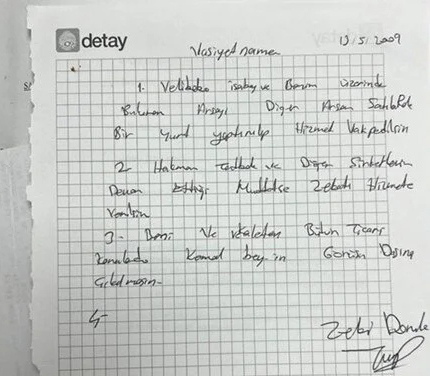 detay
13/5/2009
Vasiyetname
1. Velibaba isabey ve Benim üzerinde
Bulunan Arsayı Diğer Arsan Sahibiyle
Bir yurt yaptırılıp Hizmet Vakfedilsin
2 Hakman ve Diğer Şirketlerim
Devam Ettiği Müddetçe Zekatı Hizmete
Verilsin
3- Beni Ve vekaleten Bütün Ticari
Konularda Kemal bey-in Görüşü Dışına
Çıkılmasın-
4-
Zeki